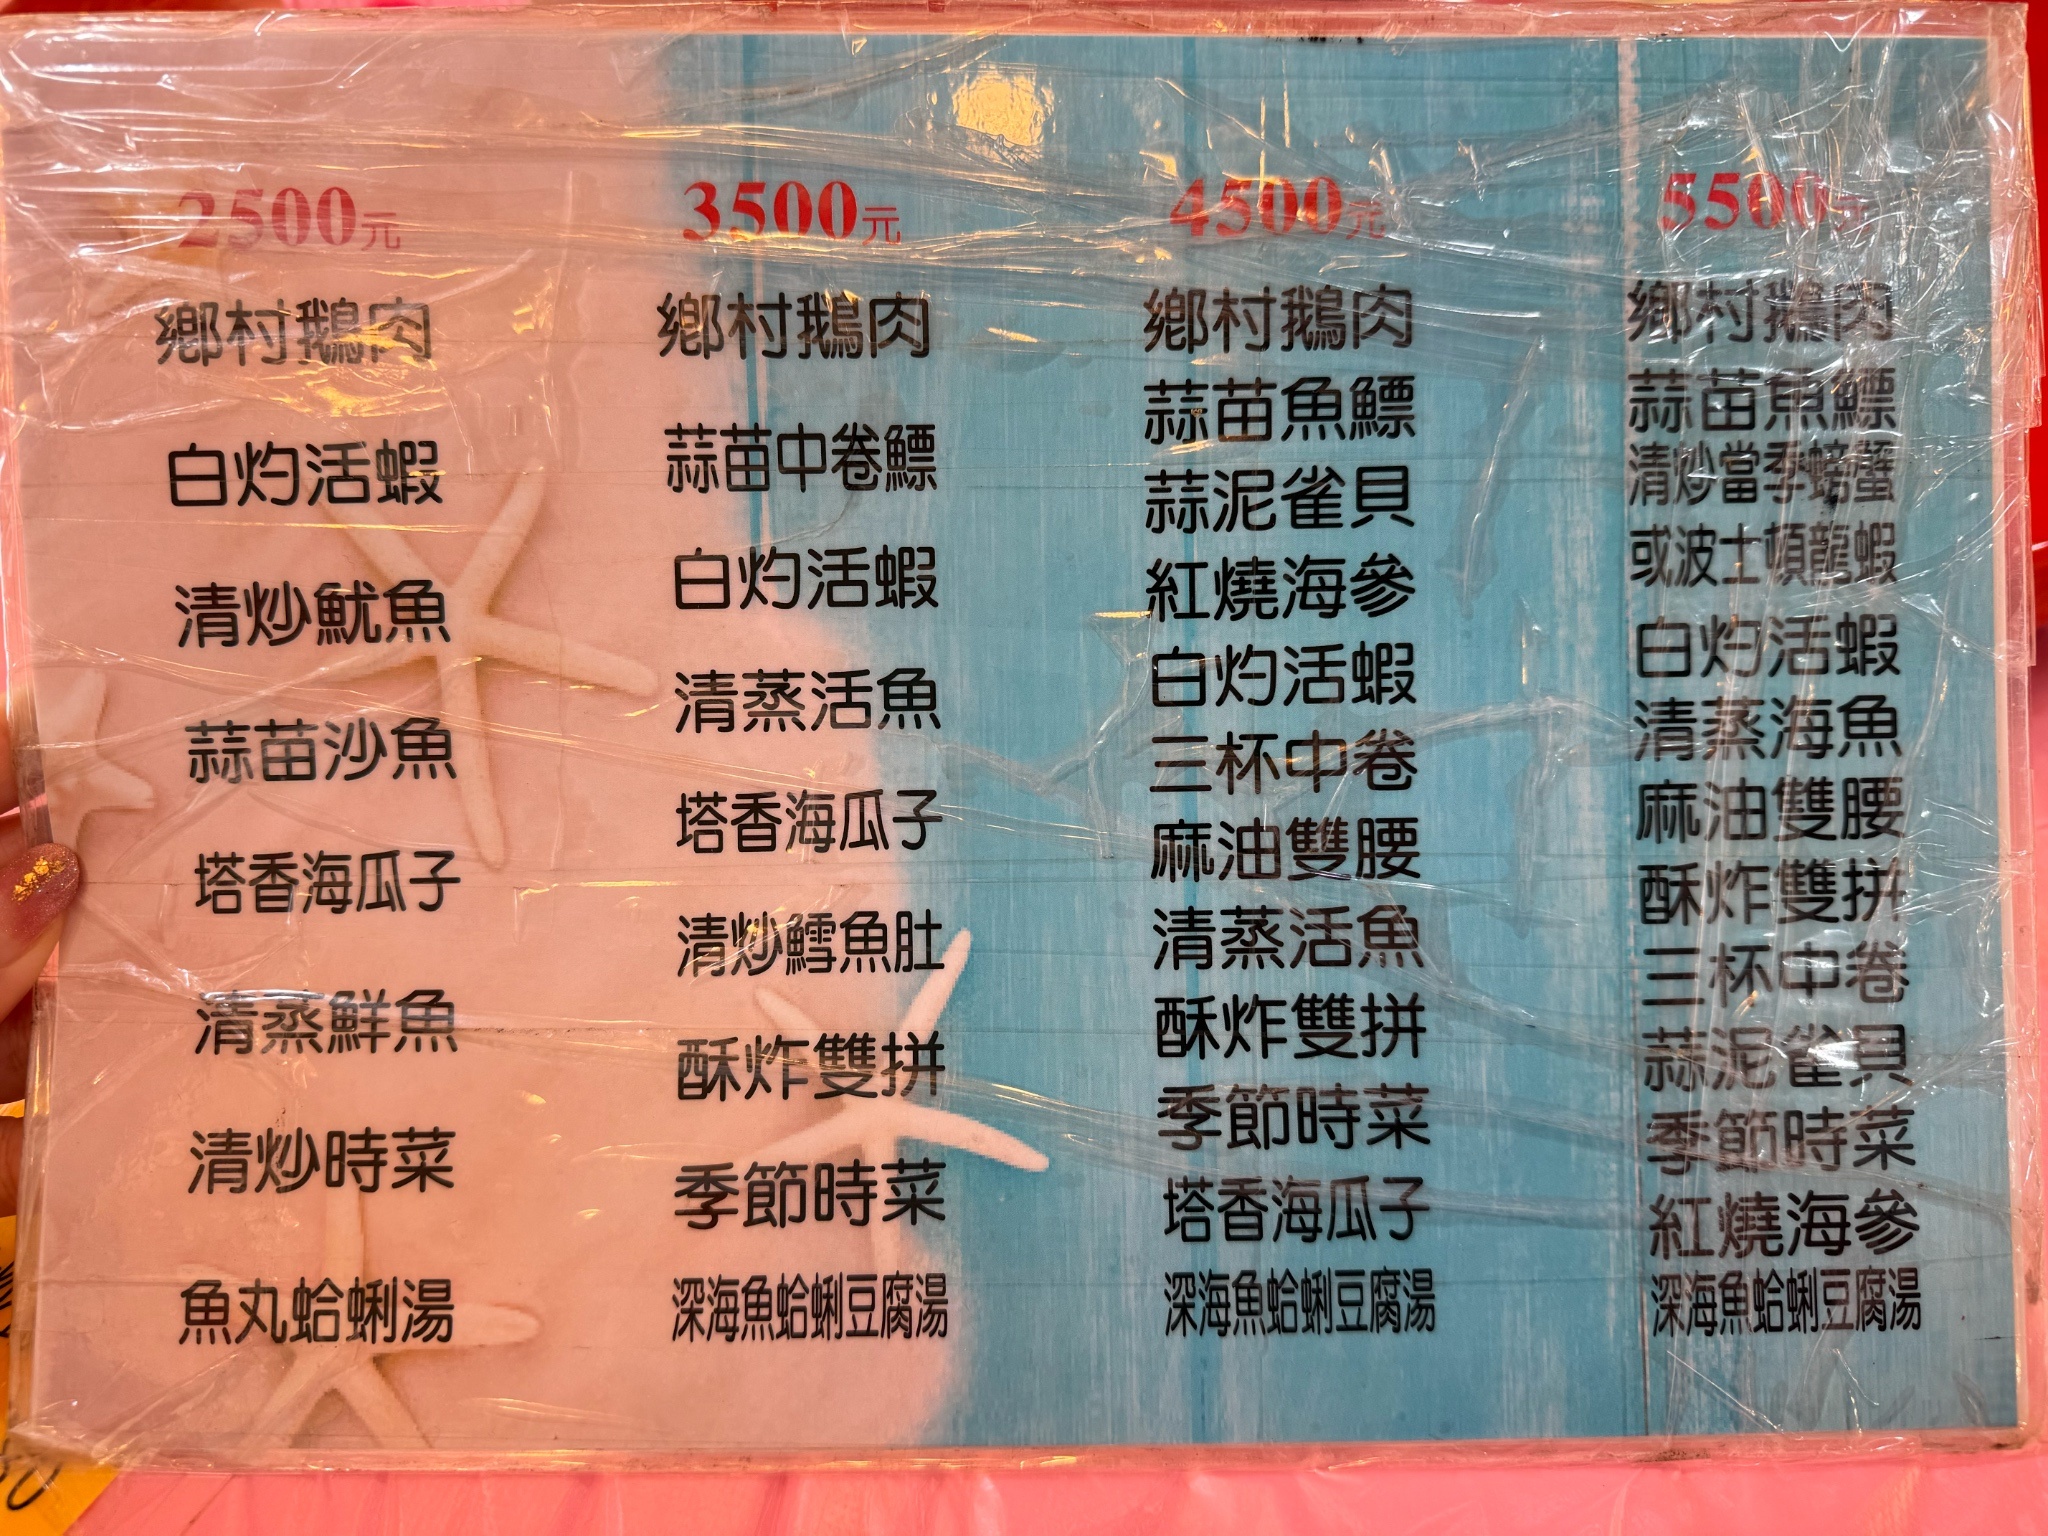 2500元
鄉村鵝肉
白灼活蝦
清炒魷魚
蒜苗沙魚
塔香海瓜子
清蒸鮮魚
清炒時菜
魚丸蛤蜊湯
3500元
鄉村鵝肉
蒜苗中卷鰾
白灼活蝦
清蒸活魚
塔香海瓜子
清炒鱈魚肚
酥炸雙拼
季節時菜
深海魚蛤蜊豆腐湯
4500元
鄉村鵝肉
蒜苗魚鰾
蒜泥雀貝
紅燒海參
白灼活蝦
三杯中卷
麻油雙腰
清蒸活魚
酥炸雙拼
季節時菜
塔香海瓜子
深海魚蛤蜊豆腐湯
5500元
鄉村鵝肉
蒜苗魚鰾
清炒當季螃蟹
或波士頓龍蝦
白灼活蝦
清蒸海魚
麻油雙腰
酥炸雙拼
三杯中卷
蒜泥雀貝
季節時菜
紅燒海參
深海魚蛤蜊豆腐湯